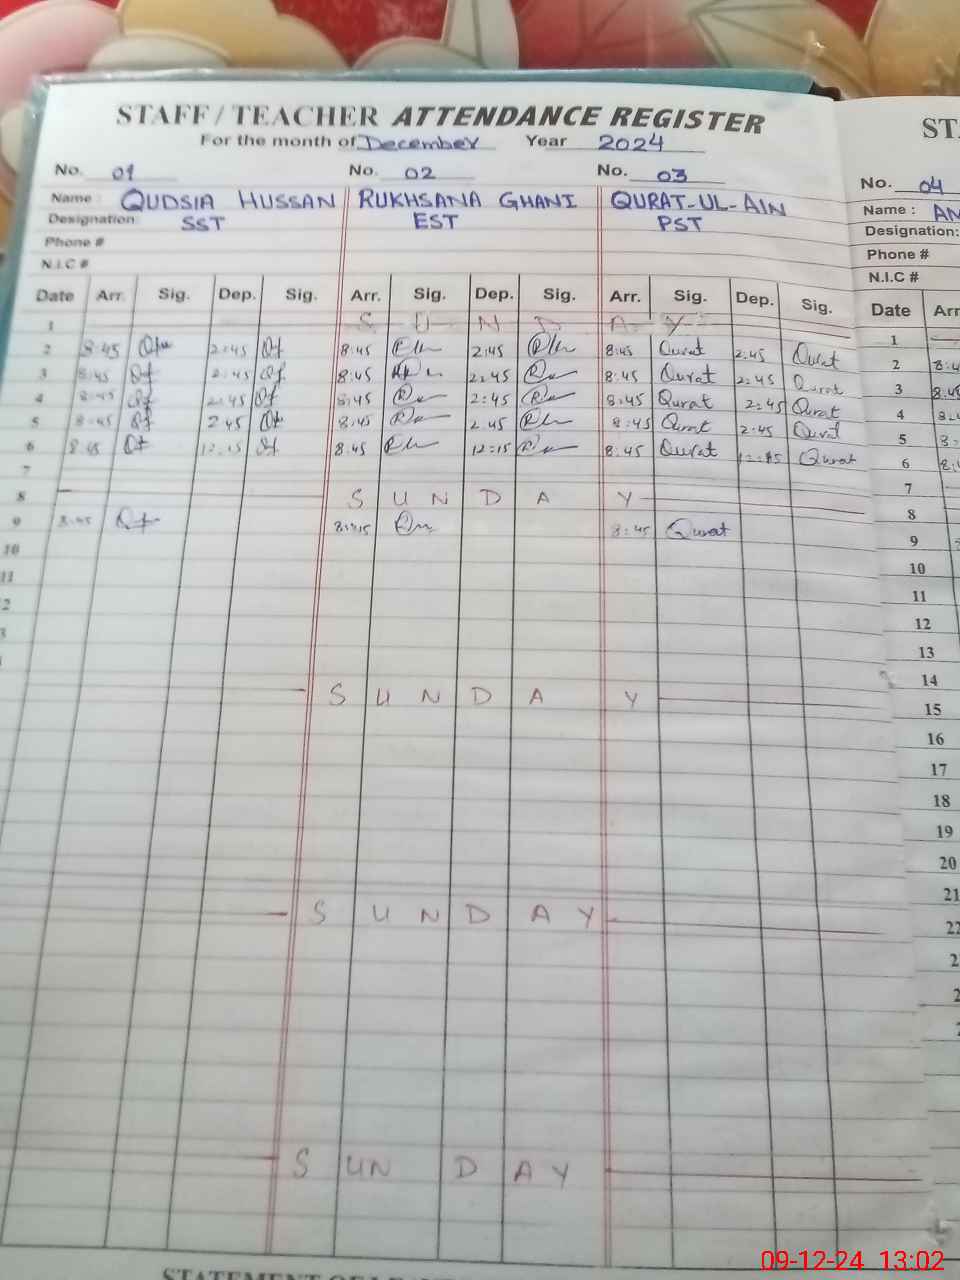 STAFF / TEACHER ATTENDANCE REGISTER ST
For the month of December Year 2024
No. 01 No. 02 No. 03 No. 04
Name : QUDSIA HUSSAN RUKHSANA GHANI QURAT-UL-AIN Name : AN
Designation: SST EST PST Designation:
Phone # Phone #
N.I.C # N.I.C #
Date Arr. Sig. Dep. Sig. Arr. Sig. Dep. Sig. Arr. Sig. Dep. Sig. Date Arr
1 S U N D A Y 1
2 8:45 2:45 8:45 2:45 8:45 Qurat 2:45 Qurat 2 8:4
3 8:45 2:45 8:45 2:45 8:45 Qurat 2:45 Qurat 3 8:4
4 8:45 2:45 8:45 2:45 8:45 Qurat 2:45 Qurat 4 8:
5 8:45 2:45 8:45 2:45 8:45 Qurat 2:45 Qurat 5 8:
6 8:45 12:15 8:45 12:15 8:45 Qurat Qurat 6 8:4
7 7
8 S U N D A Y 8
9 8:45 8:45 Qurat 9
10 10
11 11
2 12
3 13
14
S U N D A Y 15
16
17
18
19
20
21
S U N D A Y 22
2
2
2
S U N D A Y
09-12-24 13:02